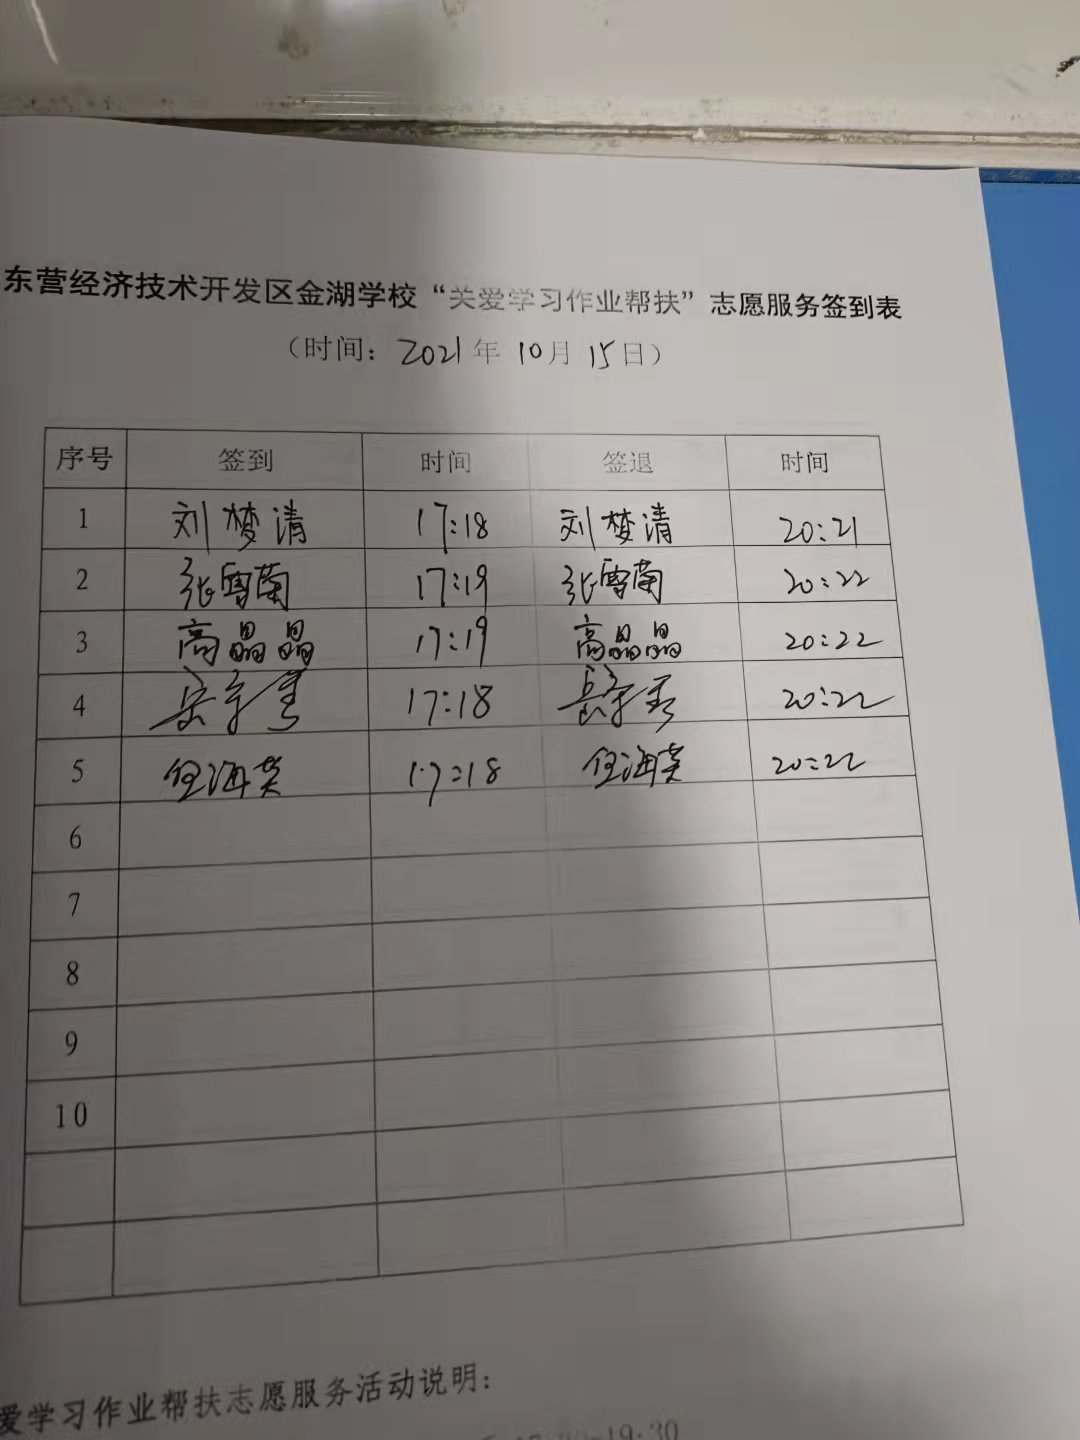 东营经济技术开发区金湖学校“关爱学习作业帮扶”志愿服务签到表
（时间：2021年10月15日）
序号 签到 时间 签退 时间
1 刘梦清 17:18 刘梦清 20:21
2 张雪菊 17:19 张雪菊 20:22
3 高晶晶 17:19 高晶晶 20:22
4 17:18 20:22
5 任海英 17:18 任海英 20:22
6
7
8
9
10
爱学习作业帮扶志愿服务活动说明：
-19:30